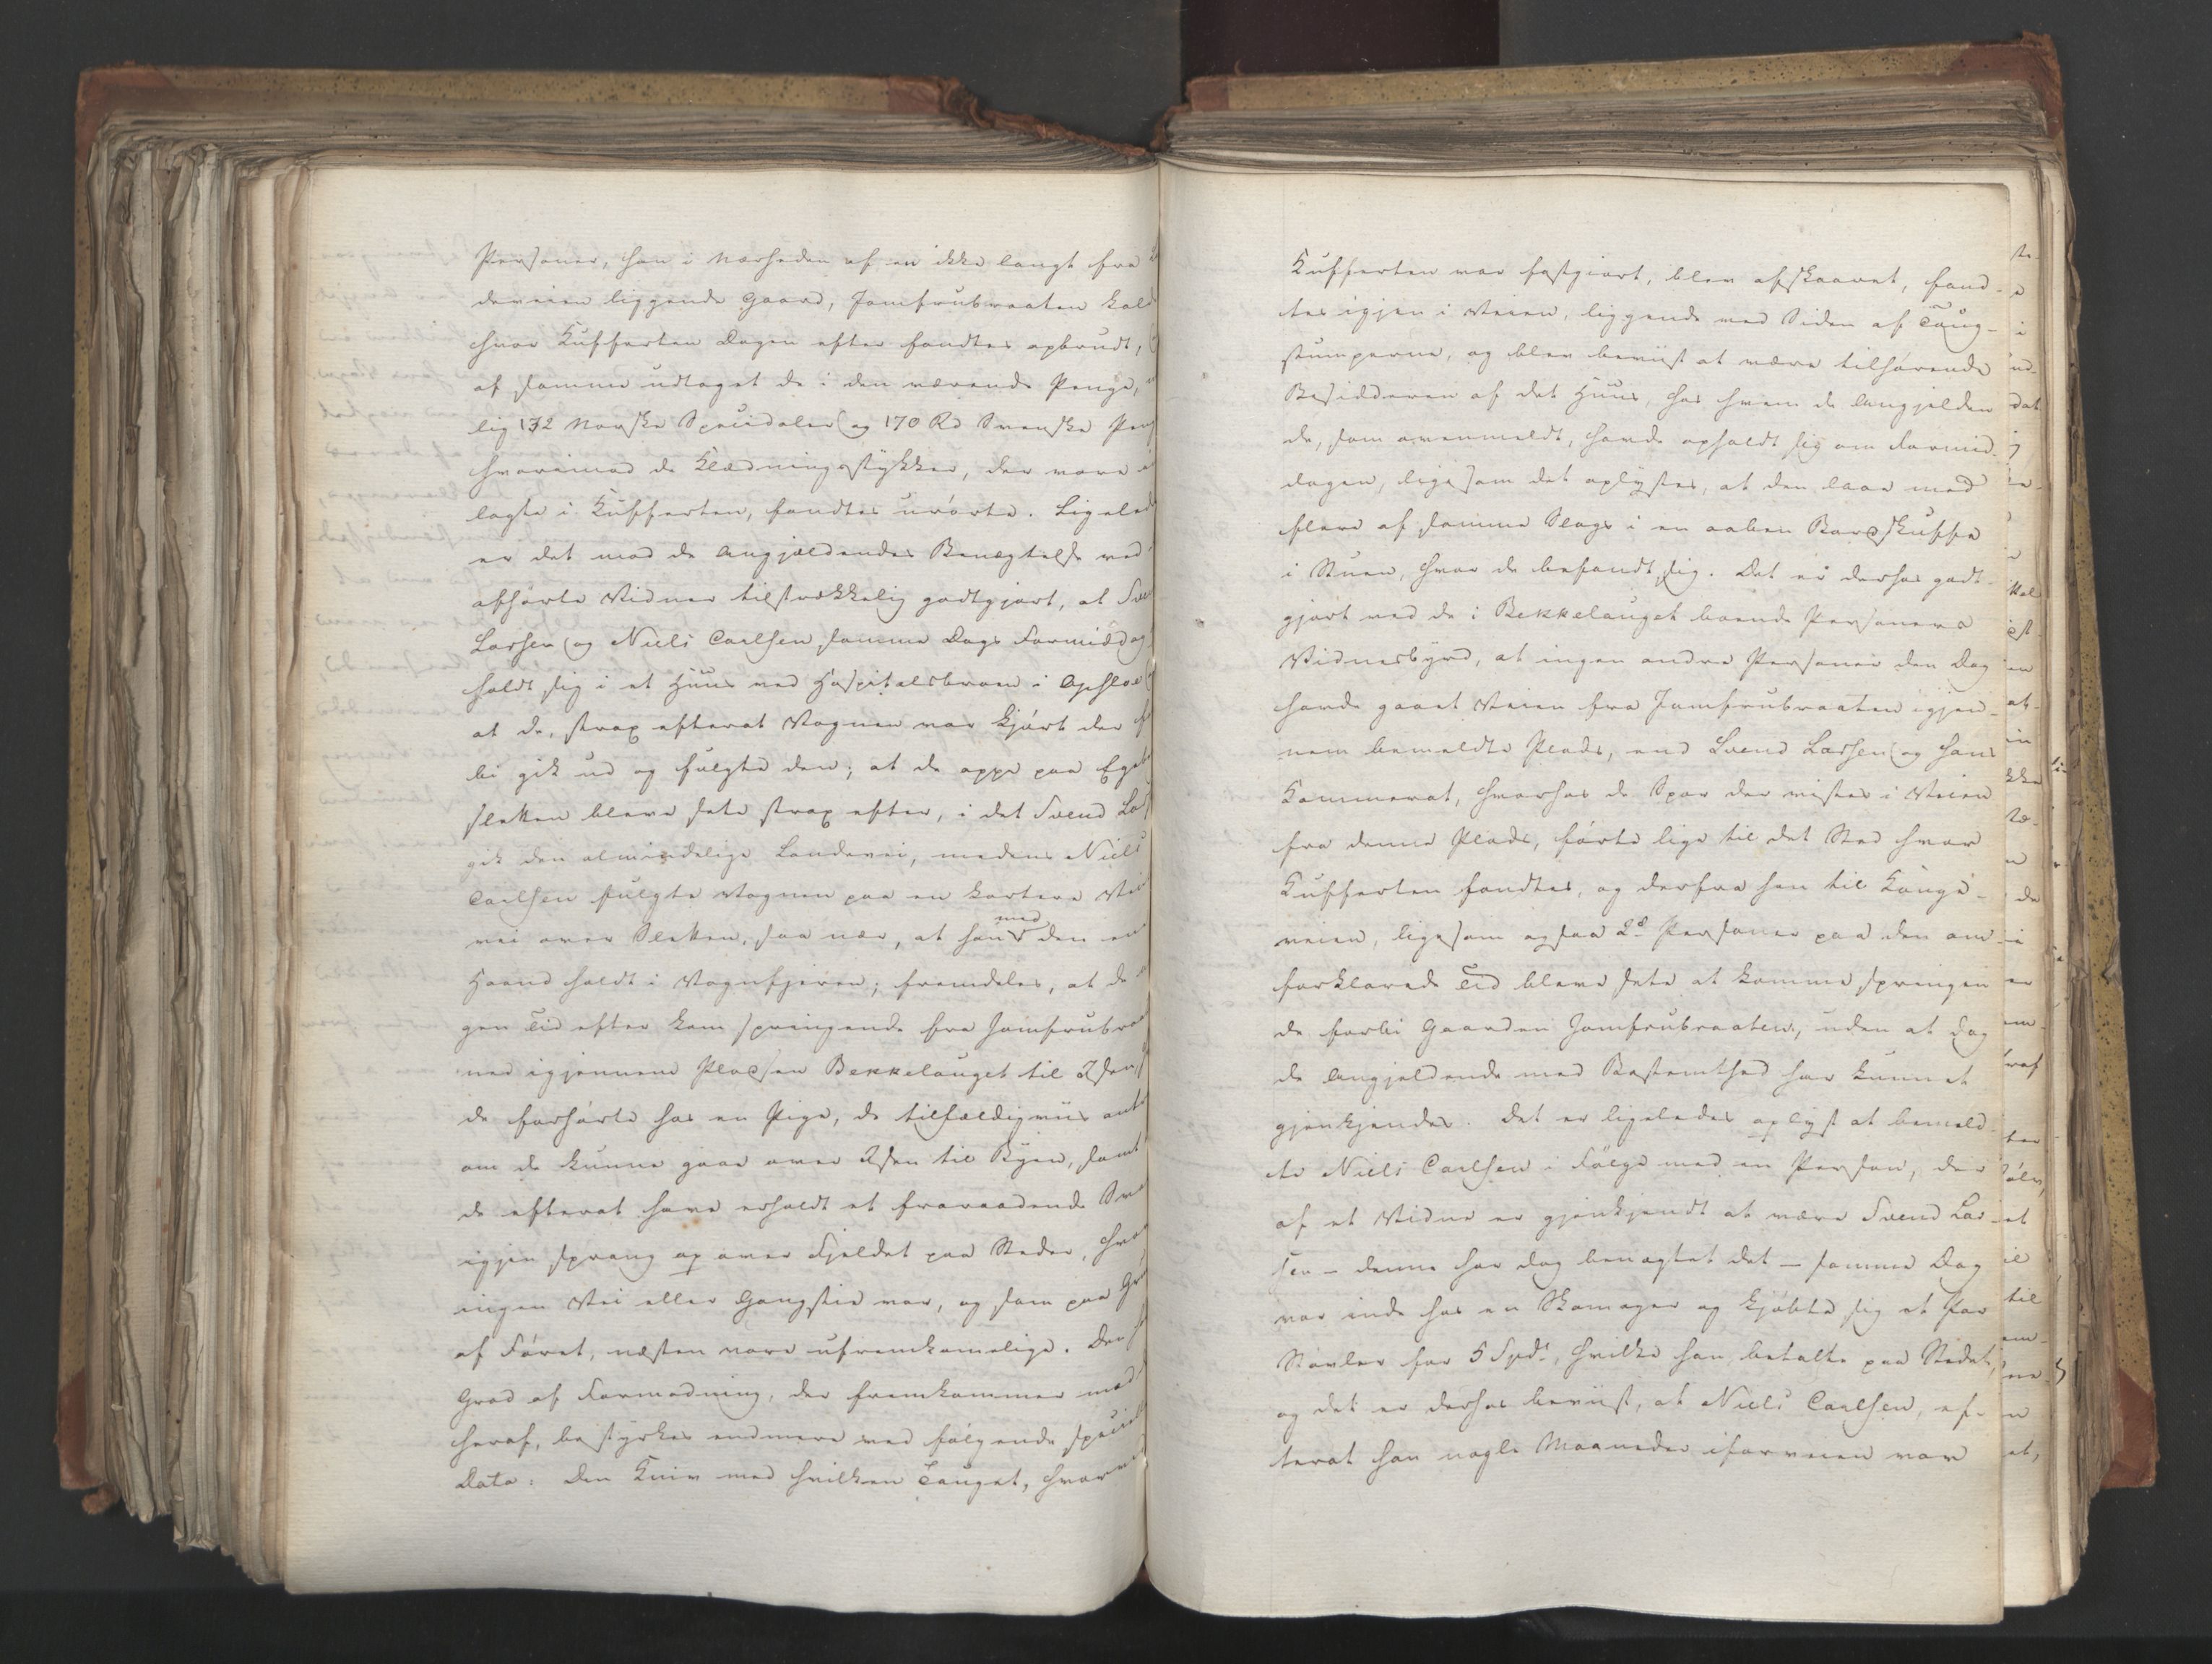 Personer, hen i Nærheden af en ikke langt fra
deveien liggende Gaard, Jomfrubraaten kald
hvor Kufferten Dagen efter fandtes opbrudt,
af samme udtaget de i den værende Penge,
lig 132 Norske Speciedaler og 170 Rd Svenske Pen
hvorimod de Klædningsstykker, der vare
lagte i Kufferten, fandtes urørte. Ligeled
er det mod de Angjældendes Benægtelse ved
afhørte Vidner tilstrækkelig godtgjort, at Sve
Larsen og Niels Carlsen samme Dags Formiddag
holdt sig i et Huus ved Hospitalsbroen i Opsloe
at de, strax efterat Vognen var kjørt der
bi gik ud og fulgte den; at de oppe paa Egeb
sletten bleve seete strax efter, i det Svend Lar
gik den almindelige Landevei, medens Niels
Carlsen fulgte Vognen paa en kortere
vei over Sletten, saa nær, at han med den en
Haand holdt i Vognfjæren; fremdeles, at de
gen Tid efter kom springende fra Jomfrubraa
ned igjennem Pladsen Bekkelauget til Isen
de forhørte hos en Pige, de tilfældigviis
om de kunne gaae over Isen til Byen, samt
de efterat have erholdt et fraraadende Sva
igjen sprang op over Fjeldet paa Steder, hvor
ingen Vei eller Gangstie var, og som paa Gru
af Føret, næsten vare ufremkomelige. Den
Grad af Formodning, der fremkommer mod
heraf, bestyrkes endmere ved følgende speciel
Data: Den Kniv med hvilken Touget, hvorve
Kufferten var fastgjort, blev afskaaret, fand-
tes igjen i Veien, liggende ved Siden af Toug-
stumperne, og blev beviist at være tilhørende
Besidderen af det Huus, hos hvem de Angjelden
de, som ovenmeldt, havde opholdt sig om Formid-
dagen, ligesom det oplystes, at den laae med
flere af samme Slags i en aaben Bordskuffe
i Stuen, hvor de befandt sig. Det er derhos godt-
gjort ved de i Bekkelauget boende Personers
Vidnesbyrd, at ingen andre Personer den Dag
havde gaaet Veien fra Jomfrubraaten igjen-
nem bemeldte Plads, end Svend Larsen og hans
Kammerat, hvorhos de Spor der vistes i Veien
fra denne Plads, førte lige til det Sted hvor
Kufferten fandtes, og derfra hen til Konge-
veien, ligesom ogsaa 2de Personer paa den om-
forklarede Tid bleve seete at komme springen
de forbi Gaarden Jomfrubraaten, uden at dog
de Angjeldende med Bestemthed har kunnet
gjenkjendes. Det er ligeledes oplyst at bemeld
te Niels Carlsen i Følge med en Person, der
af et Vidne er gjenkjendt at være Svend Lar-
sen – denne har dog benægtet det – samme Dag
var inde hos en Skomager og kjøbte sig et Par
Støvler for 5 Spd, hvilke han betalte paa Stedet,
og det er derhos beviist, at Niels Carlsen, ef-
terat han nogle Maaneder iforveien var